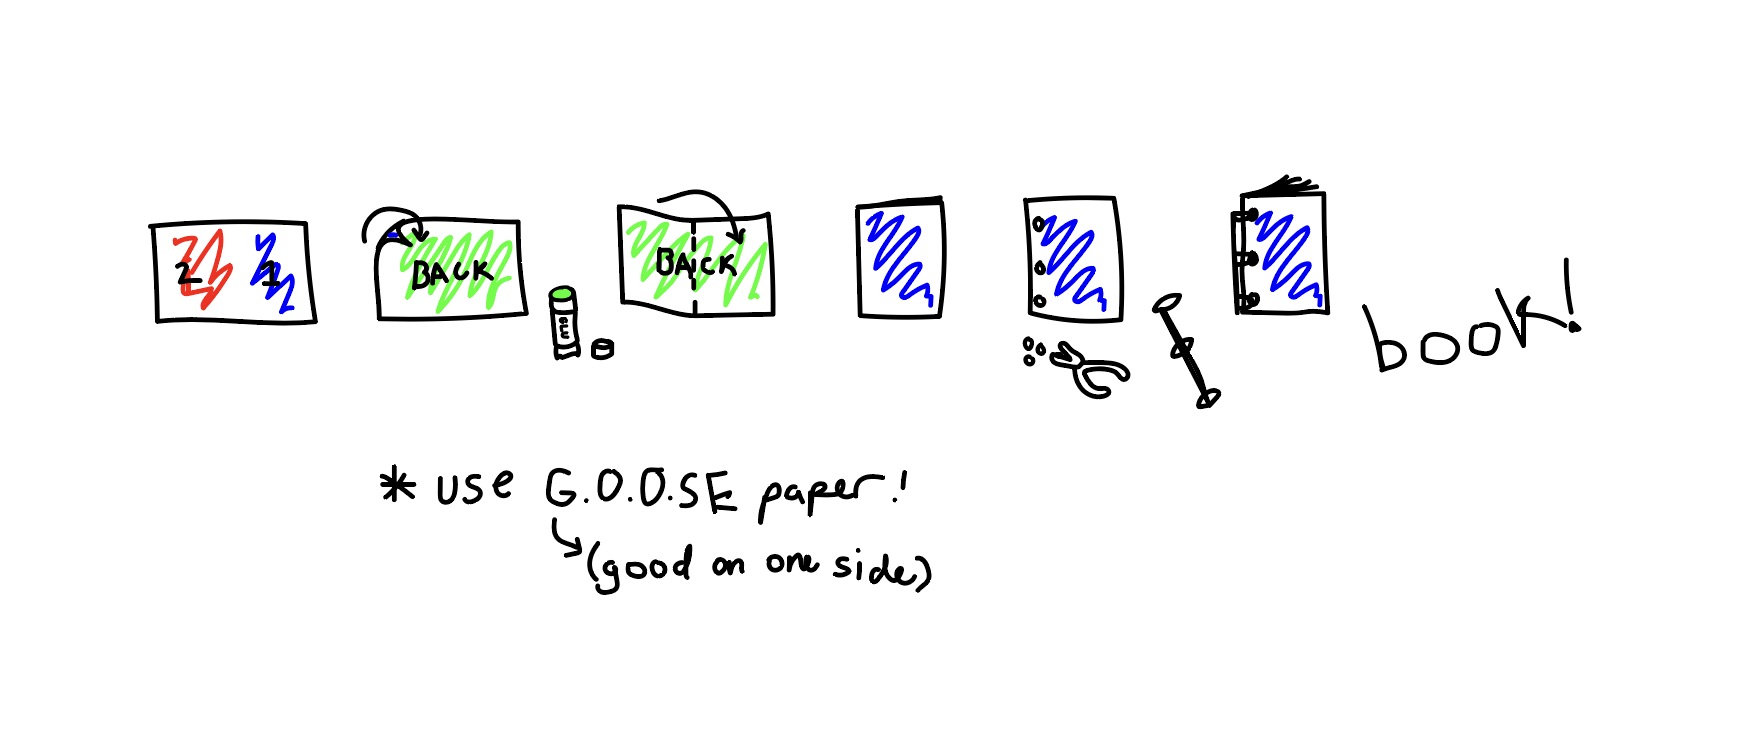 2 1
BACK
BACK
book!
* use G.O.O.SE paper!
(good on one side)